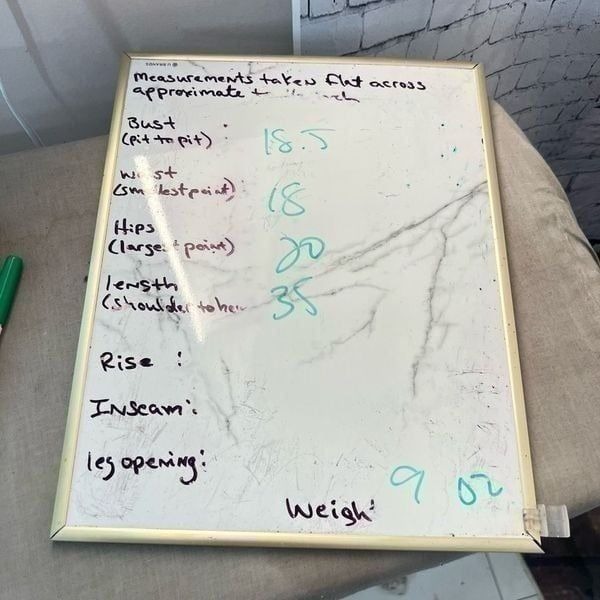 U BRANDS
Measurements taken flat across
approximate
Bust :
(pit to pit) 18.5
(smallest point) 18
Hips
(largest point) 20
length
(shoulder to 35
Rise :
Inseam:
leg opening:
Weigh: 9 oz